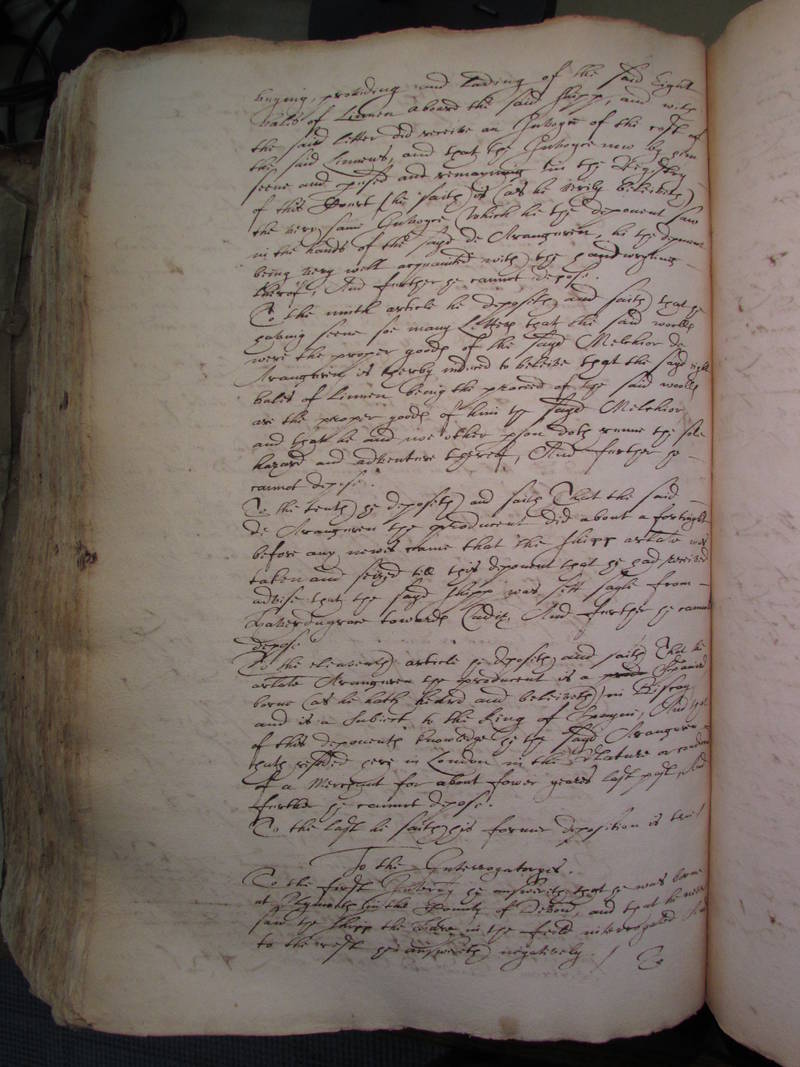 buying, providing and lading of the said Eight
bales of Linnen aboard the said shipp, and with
the said letter did receive an Invoyce of the cost of
the said Linnens, and that the Invoyce now by him
seene and perused and remayning in the Registry
of this Court (he saith) is (as he verily beleiveth)
the very same Invoyce which he the deponent saw
in the hands of the sayd de Aranguren, he the deponent
being very well acquainted with the handwriting
therof, And further he cannot depose.
To the nineth article he deposeth and saith that he
having seene soe many Letters that the said woolls
were the proper goods of the sayd Melchior de
Aranguren is therby induced to beleive that the sayd eight
bales of Linnen being the proceed of the said woolls
are the proper goods of him the sayd Melchior
and that he and noe other pson doth runne the sole
hazard and adventure thereof, And further he
cannot depose.
To the tenth he deposeth and saith That the said
de Aranguren the producent did about a fortnight
before any newes came that the shipp arlate was
taken and seized tell this deponent that he had received
advise that the sayd shipp was sett sayle from
towards Cadiz, And further he cannot
depose
To the eleaventh article he deposeth and saith That the
arlate Aranguren the producent is a Spaniard
borne (as he hath heard and beleiveth) in Biscay
and is a Subiect to the King of Spayne, And
of this deponents knowledge he the sayd Aranguren
hath resided here in London in the
of a Merchant for about fower yeares last past, And
further he cannot depose.
To the last he saith his former deposition is true
To the Interrogatories.
To the first Interry he answereth that he was borne
at Plymouth in the County of Devon, and that he never
saw the shipp the in the interrogated And
to the rest he answereth negatively. /
To